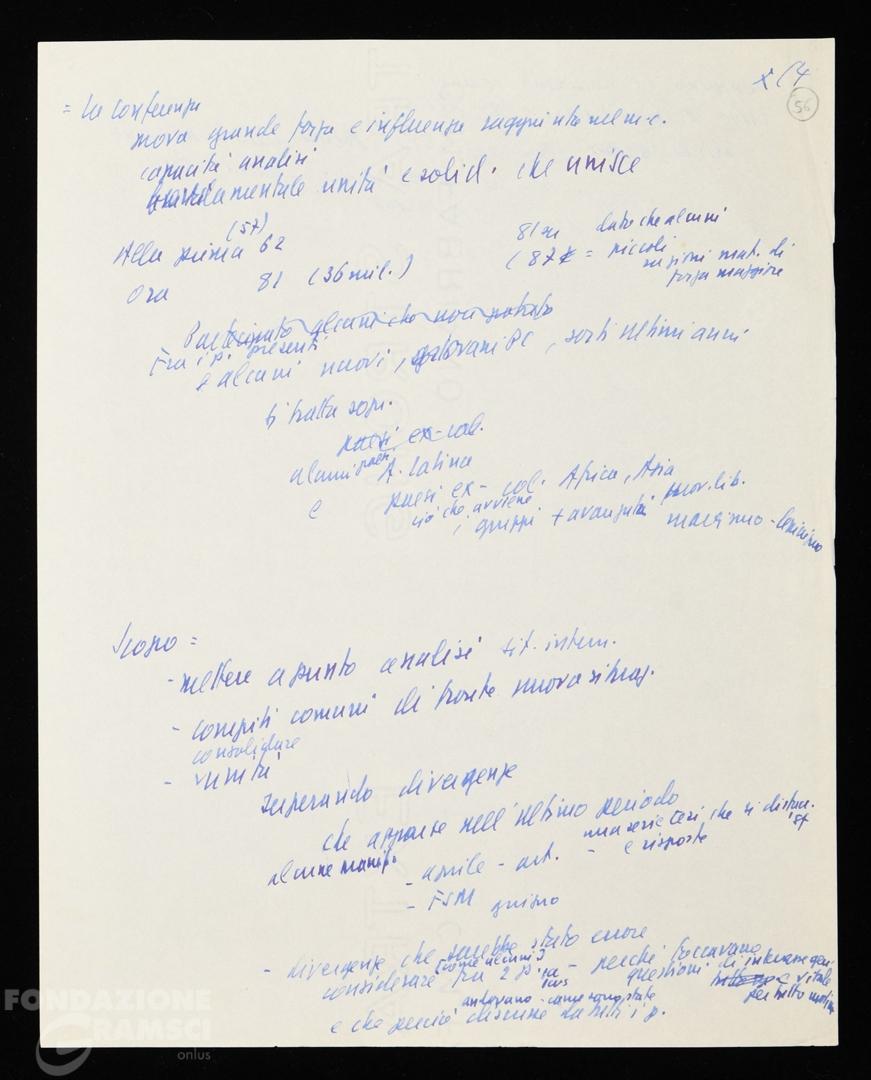 x (4
56
= la conferenza
nuova grande forza e influenza raggiunta nel m.c.
capacità analisi
fondamentale unità e solid. che unisce
(57)
Alla prima 62
Ora 81 (36 mil.)
81 su dato che alcuni
(87 = piccoli
ragioni mat. di
forza maggiore
Partecipato alcuni che non potuto
Fra i p. presenti
e alcuni nuovi, giovani PC, sorti ultimi anni
si tratta sopr.
paesi ex-col.
alcuni paesi A. Latina
e paesi ex-col. Africa, Asia
ciò che avviene mov. lib.
i gruppi + avanguardia marxismo-leninismo
Scopo =
- mettere a punto analisi sit. intern.
- compiti comuni di fronte nuova situaz.
consolidare
- unità
superando divergenze
che apparse nell'ultimo periodo
alcune manif.
- aprile - art. - una serie tesi che si
e risposte
- FSM giugno
- divergenze che sarebbe stato errore
(come alcuni)
considerare tra 2 p. - perché toccavano
questioni di interesse gen.
e vitale
per tutto movim.
andavano - come sono state
e che perciò discusse da tutti i p.
FONDAZIONE
GRAMSCI
onlus